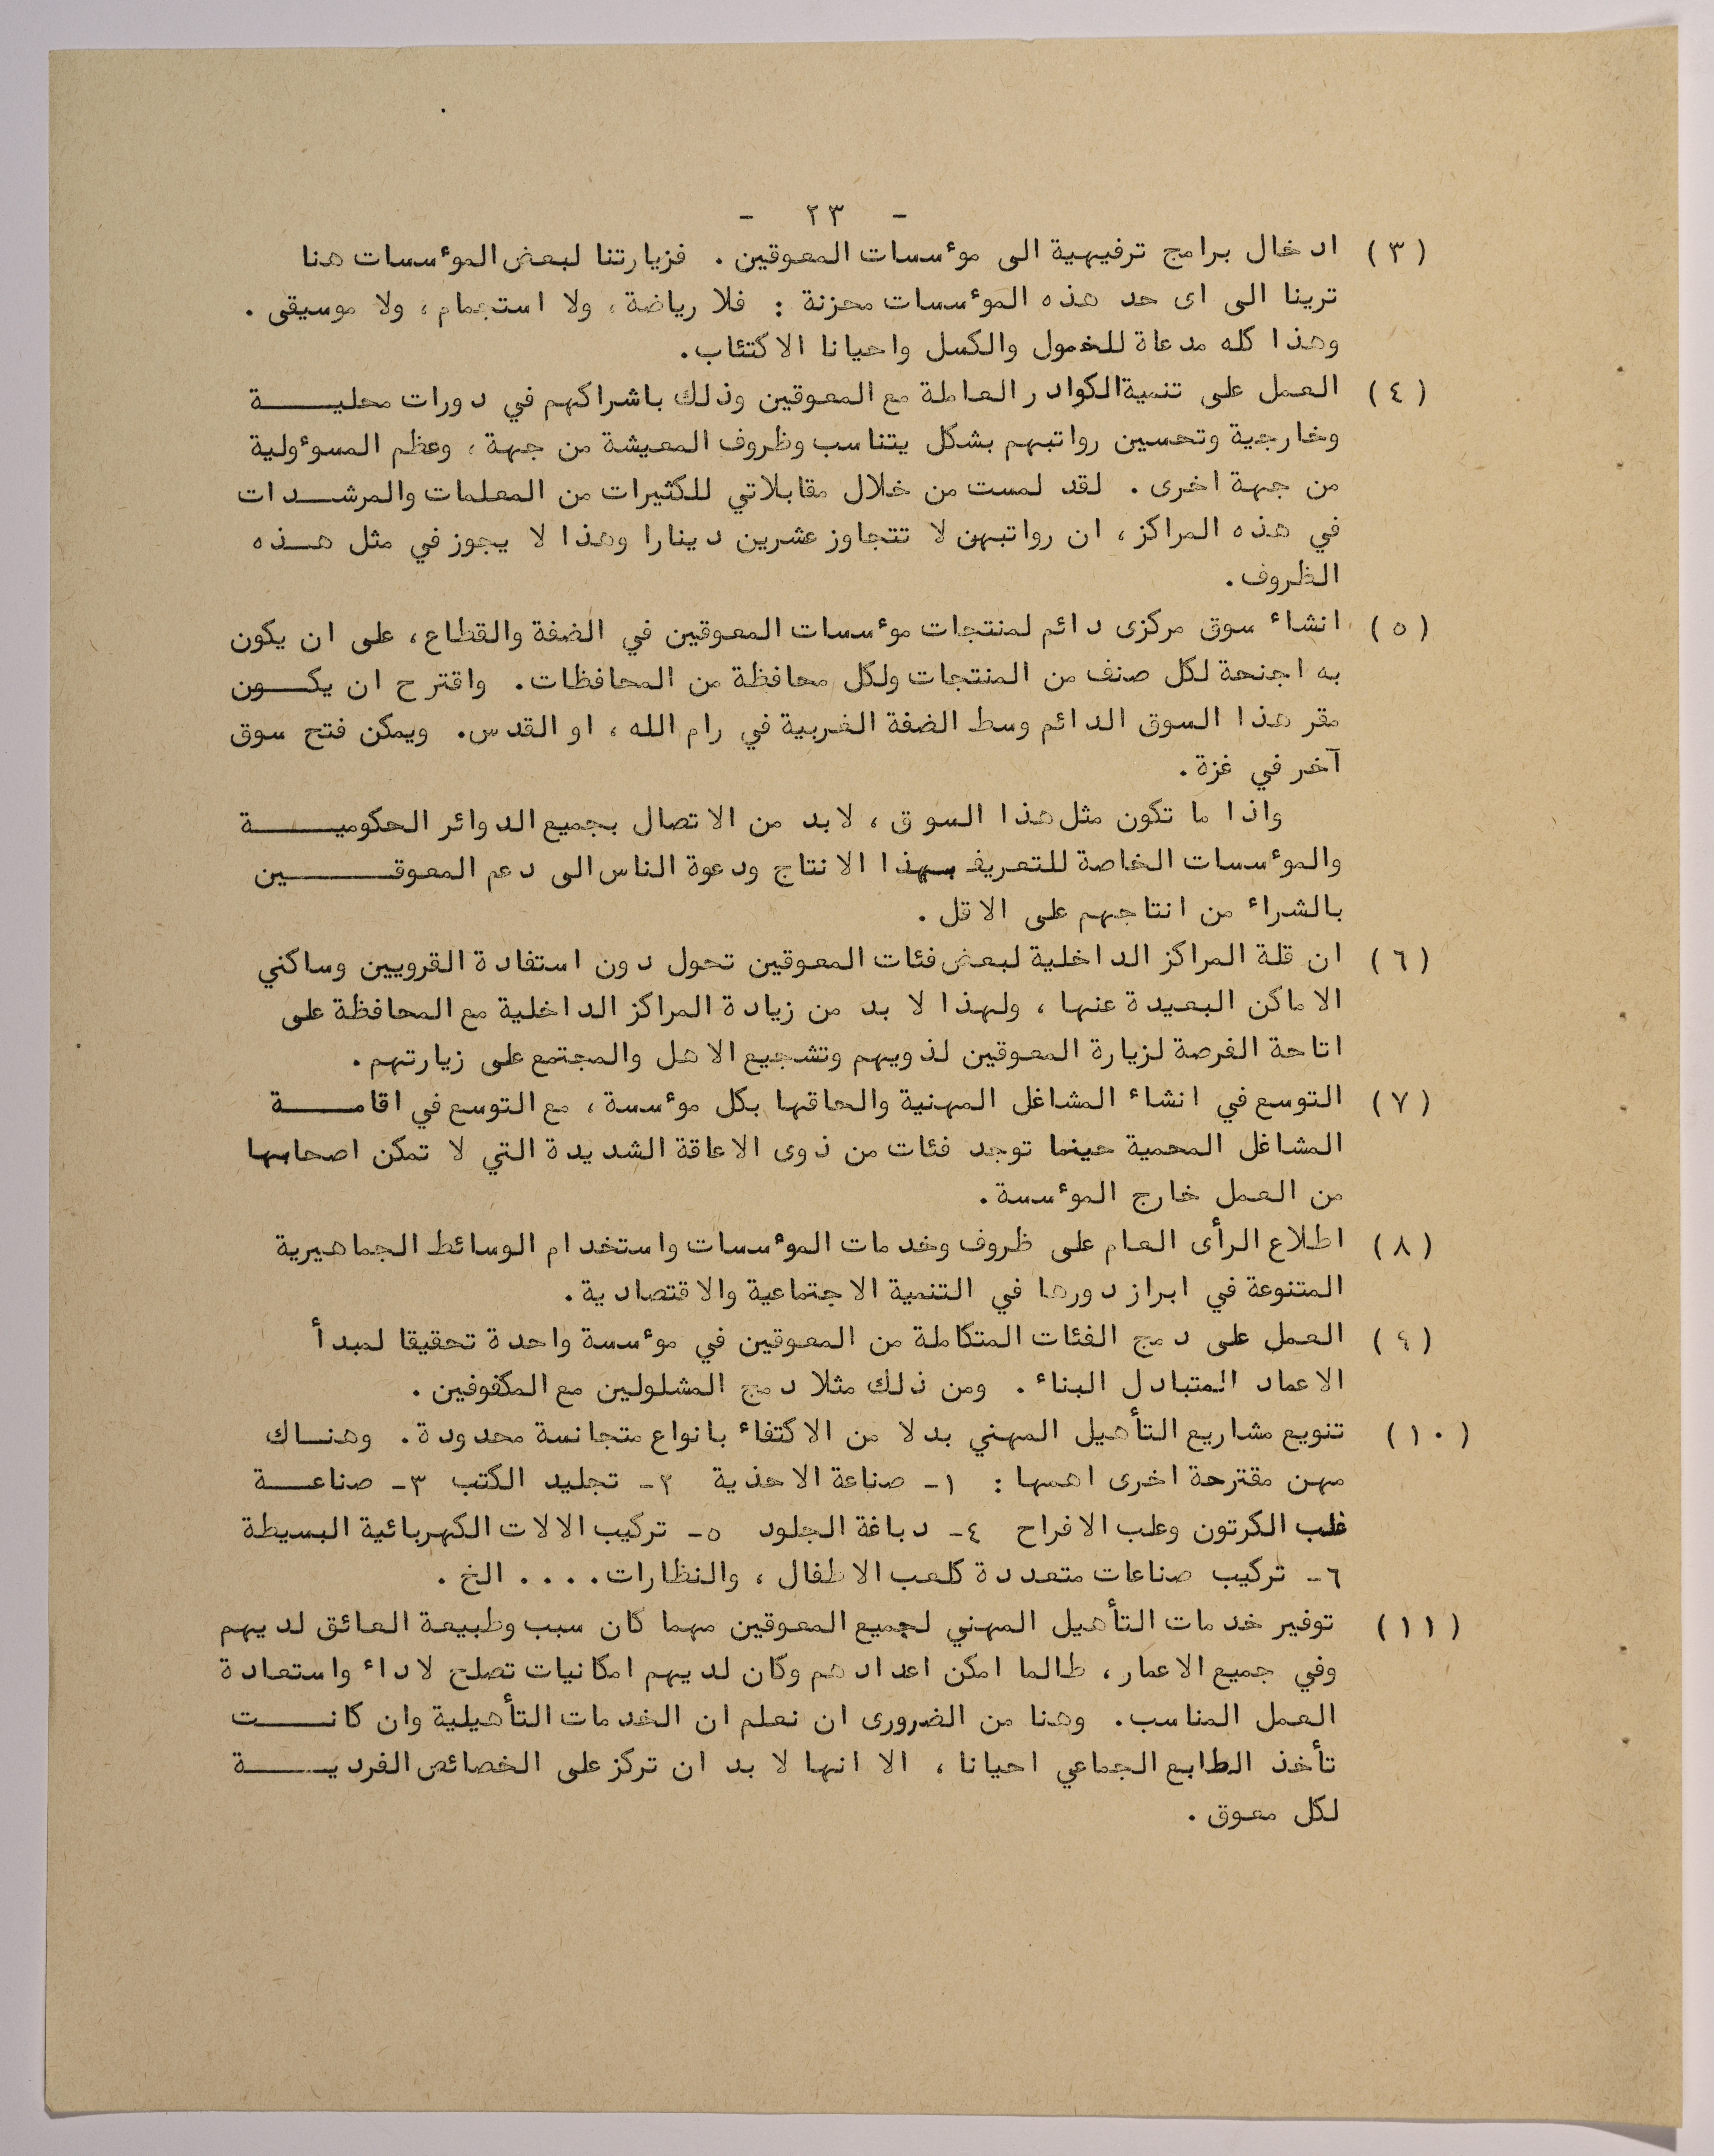 - ٢٣ -
(٣) ادخال برامج ترفيهية الى مؤسسات المعوقين . فزيارتنا لبعض المؤسسات هنا
ترينا الى اى حد هذه المؤسسات محزنة : فلا رياضة ، ولا استجمام ، ولا موسيقى .
وهذا كله مدعاة للخمول والكسل واحيانا الاكتئاب .
(٤) العمل على تنمية الكوادر العاملة مع المعوقين وذلك باشراكهم في دورات محليـــة
وخارجية وتحسين رواتبهم بشكل يتناسب وظروف المعيشة من جهة ، وعظم المسوءولية
من جهة اخرى . لقد لمست من خلال مقابلاتي للكثيرات من المعلمات والمرشــدات
في هذه المراكز ، ان رواتبهن لا تتجاوز عشرين دينارا وهذا لا يجوز في مثل هــذه
الظروف .
(٥) انشاء سوق مركزى دائم لمنتجات مؤسسات المعوقين في الضفة والقطاع ، على ان يكون
به اجنحة لكل صنف من المنتجات ولكل محافظة من المحافظات . واقترح ان يكــون
مقر هذا السوق الدائم وسط الضفة الغربية في رام الله ، او القدس . ويمكن فتح سوق
آخر في غزة .
واذا ما تكون مثل هذا السوق ، لابد من الاتصال بجميع الدوائر الحكوميـــة
والمؤسسات الخاصة للتعريف بهذا الانتاج ودعوة الناس الى دعم المعوقـــين
بالشراء من انتاجهم على الاقل .
(٦) ان قلة المراكز الداخلية لبعض فئات المعوقين تحول دون استفادة القرويين وساكني
الاماكن البعيدة عنها ، ولهذا لا بد من زيادة المراكز الداخلية مع المحافظة على
اتاحة الفرصة لزيارة المعوقين لذويهم وتشجيع الاهل والمجتمع على زيارتهم .
(٧) التوسع في انشاء المشاغل المهنية والحاقها بكل مؤسسة ، مع التوسع في اقامـــة
المشاغل المحمية حينما توجد فئات من ذوى الاعاقة الشديدة التي لا تمكن اصحابها
من العمل خارج المؤسسة .
(٨) اطلاع الرأى العام على ظروف وخدمات المؤسسات واستخدام الوسائط الجماهيرية
المتنوعة في ابراز دورها في التنمية الاجتماعية والاقتصادية .
(٩) العمل على دمج الفئات المتكاملة من المعوقين في مؤسسة واحدة تحقيقا لمبدأ
الاعماد المتبادل البناء . ومن ذلك مثلا دمج المشلولين مع المكفوفين .
(١٠) تنويع مشاريع التأهيل المهني بدلا من الاكتفاء بانواع متجانسة محدودة . وهنــاك
مهن مقترحة اخرى اهمها : ١- صناعة الاحذية ٢- تجليد الكتب ٣- صناعــة
علب الكرتون وعلب الافراح ٤- دباغة الجلود ٥- تركيب الالات الكهربائية البسيطة
٦- تركيب صناعات متعددة كلعب الاطفال ، والنظارات .... الخ .
(١١) توفير خدمات التأهيل المهني لجميع المعوقين مهما كان سبب وطبيعة العائق لديهم
وفي جميع الاعمار ، طالما امكن اعدادهم وكان لديهم امكانيات تصلح لاداء واستعادة
العمل المناسب . وهنا من الضرورى ان نعلم ان الخدمات التأهيلية وان كانـــت
تأخذ الطابع الجماعي احيانا ، الا انها لا بد ان تركز على الخصائص الفرديـــة
لكل معوق .